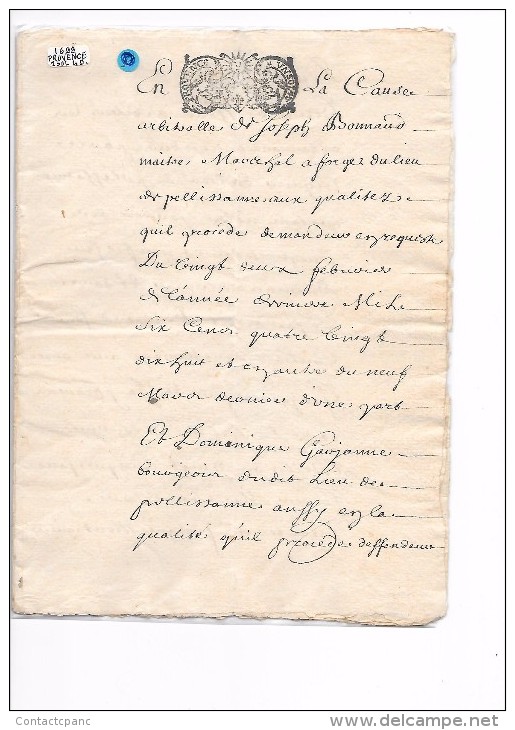 1699
PROVENCE
En La Cause
arbitralle de Joseph Bonnaud
maitre Mareschal a forges du lieu
de pellissanne aux qualites
quil procede demandeur en requeste
Du Vingt deux febvrier
de l'année derniere Mil
Six Cens quatre Vingt
dix huit et en autre du neuf
Mars dernier d'une part
Et Dominique
bourgeois dudit Lieu de
pellissanne aussy en la
qualité qu'il procede deffendeur
Contactcpanc
www.delcampe.net